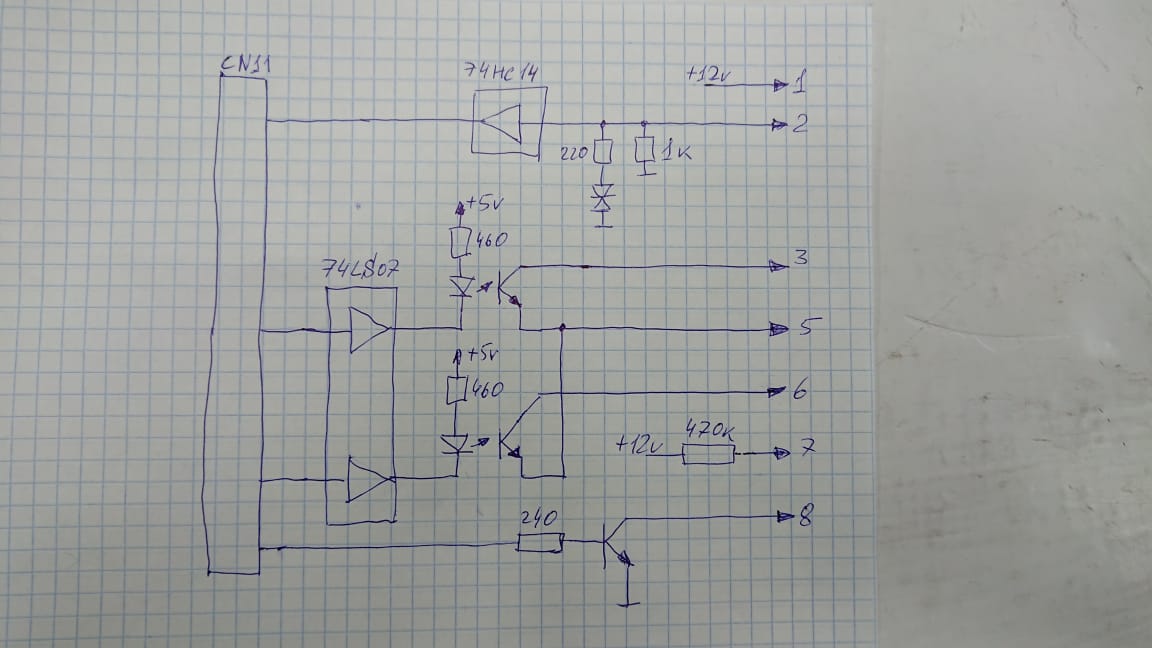 CN11
74HC14
+12v
1
2
220
1K
+5v
460
74LS07
3
5
+5v
460
6
+12v
470K
7
240
8